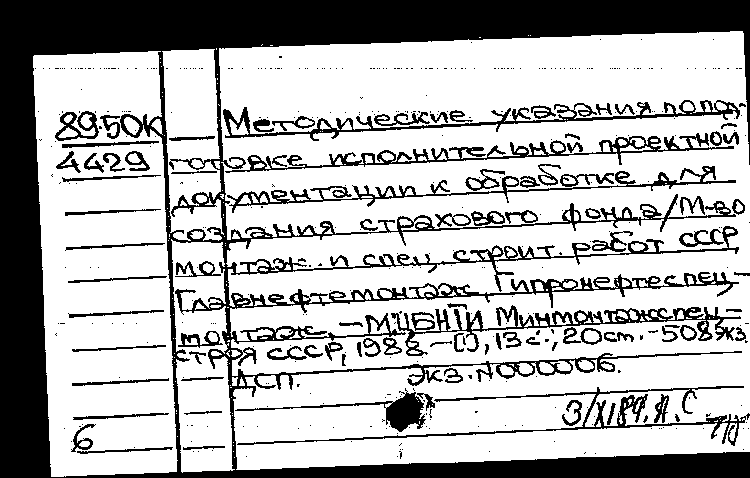 89-50К Методические указания по под-
4429 готовке исполнительной проектной
документации к обработке для
создания страхового фонда/М-во
монтаж. и спец. строит. работ СССР,
Главнефтемонтаж, Гипронефтеспец-
монтаж. —М: ЦБНТИ Минмонтажспец-
строя СССР, 1988. —[], 13 с.; 20 cm. -508 экз.
ДСП. Экз. N000006.
3/XI89. А. С
6